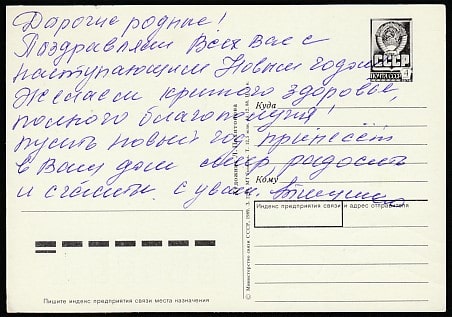 Дорогие родные!
Поздравляем Всех Вас с
наступающим Новым годом
Желаем крепкого здоровье,
полного благополучия!
пусть новый год принесёт
в Ваш дом мир, радость
и счастье с уваж.
СССР
ПОЧТА СССР
4
Куда
Кому
Индекс предприятия связи и адрес отправителя
Пишите индекс предприятия связи места назначения
© Министерство связи СССР, 1980.